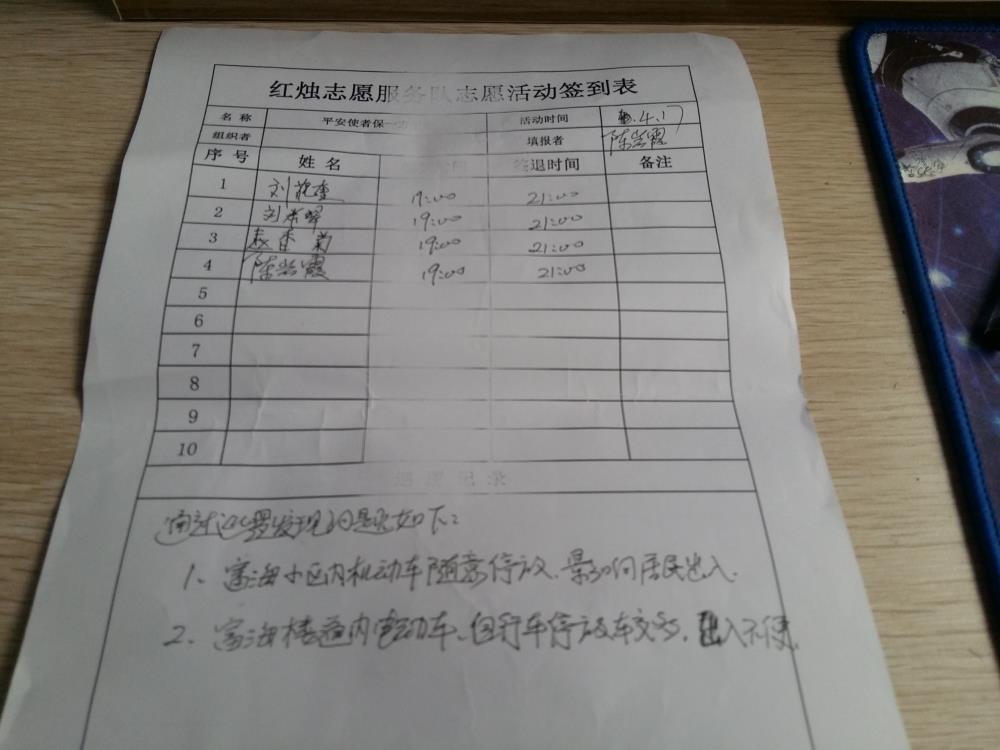 红烛志愿服务队志愿活动签到表
名 称 平安使者保一方 活动时间 4.17
组织者 填报者 陈岩霞
序 号 姓 名 时间 签退时间 备注
1 刘 19:00 21:00
2 刘 翠 19:00 21:00
3 香菊 19:00 21:00
4 陈岩霞 19:00 21:00
5
6
7
8
9
10
巡逻记录
通过巡逻发现问题如下：
1、富海小区内机动车随意停放、影响居民出入.
2、富海楼道内电动车、自行车停放较多，出入不便.